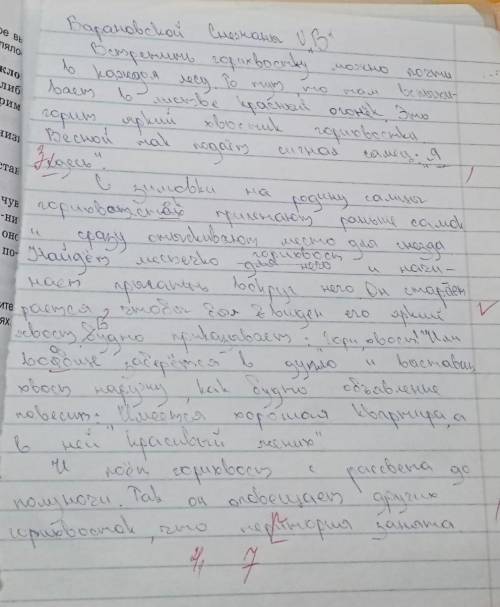 Барановской Снежаны V "В"
Встретить горихвостку можно почти
в каждом лесу. То тут то там вспыхи-
вает в листве красный огонёк. Это
горит яркий хвостик горихвостки
Весной так подаёт сигнал самец: Я
Здесь".
С зимовки на родину самцы
прилетают раньше самок
и сразу отыскивают место для гнезда
Найдёт местечко горихвост для него и начи-
нает прыгать вокруг него Он старает
рается, чтобы был виден его яркий
хвост, будто приказывает: "гори, хвост!" Или
вообще заберётся в дупло и выставит
хвост наружу, как будто объявление
повесит: "Имеется хорошая квартира, а
в ней красивый жених"
И поёт горихвост с рассвета до
полуночи. Так он оповещает других
горихвосток, что территория занята
4/1 7